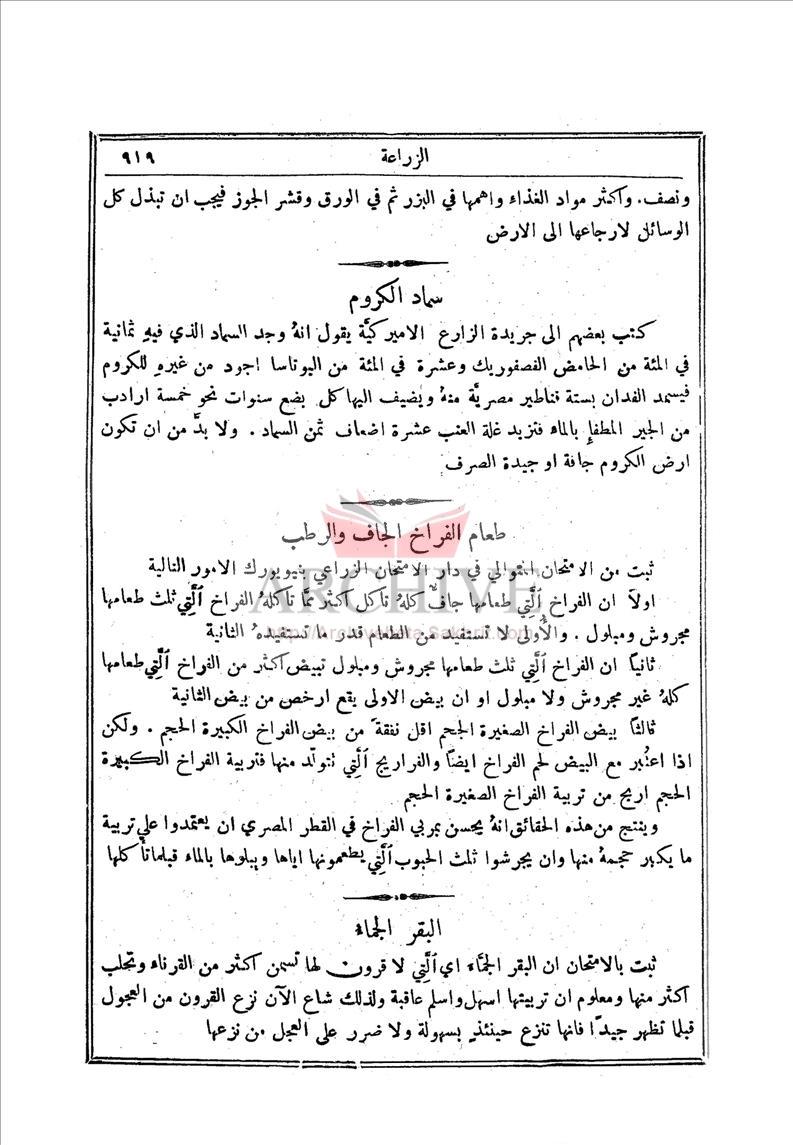 الزراعة ٩١٩
ونصف. وأكثر مواد الغذاء واهمها في البزر ثم في الورق وقشر الجوز فيجب ان تبذل كل
الوسائل لارجاعها الى الارض
سماد الكروم
كتب بعضهم الى جريدة الزارع الاميركيَّة يقول انهُ وجد السماد الذي فيهِ ثمانية
في المئة من الحامض الفصفوريك وعشرة في المئة من البوتاسا اجود من غيرهِ للكروم
فيسمد الفدان بستة قناطير مصريَّة منهُ ويضيف اليها كل بضع سنوات نحو خمسة ارادب
من الجير المطفإ بالماء فتزيد غلة العنب عشرة اضعاف ثمن السماد. ولا بدَّ من ان تكون
ارض الكروم جافة او جيدة الصرف
طعام الفراخ الجاف والرطب
ثبت من الامتحان المتوالي في دار الامتحان الزراعي بنيويورك الامور التالية
اولاً ان الفراخ الَّتي طعامها جاف كلهُ تأكل أكثر ممَّا تأكلهُ الفراخ الَّتي ثلث طعامها
مجروش ومبلول. والأولى لا تستفيد من الطعام قدر ما تستفيدهُ الثانية
ثانياً ان الفراخ الَّتي ثلث طعامها مجروش ومبلول تبيض أكثر من الفراخ الَّتي طعامها
كلهُ غير مجروش ولا مبلول او ان بيض الاولى يقع ارخص من بيض الثانية
ثالثاً بيض الفراخ الصغيرة الحجم اقل نفقة من بيض الفراخ الكبيرة الحجم. ولكن
اذا اعتُبر مع البيض لحم الفراخ ايضاً والفراريج الَّتي تتولَّد منها فتربية الفراخ الكبيرة
الحجم اربح من تربية الفراخ الصغيرة الحجم
وينتج من هذه الحقائق انهُ يحسن بمربي الفراخ في القطر المصري ان يعتمدوا على تربية
ما يكبر حجمهُ منها وان يجرشوا ثلث الحبوب الَّتي يطعمونها اياها ويبلوها بالماء قبلما تأكلها
البقر الجماء
ثبت بالامتحان ان البقر الجمَّاء اي الَّتي لا قرون لها تسمن أكثر من القرناء وتحلب
أكثر منها ومعلوم ان تربيتها اسهل واسلم عاقبة ولذلك شاع الآن نزع القرون من العجول
قبلما تظهر جيداً فانها تنزع حينئذٍ بسهولة ولا ضرر على العجل من نزعها
ARCHIVE